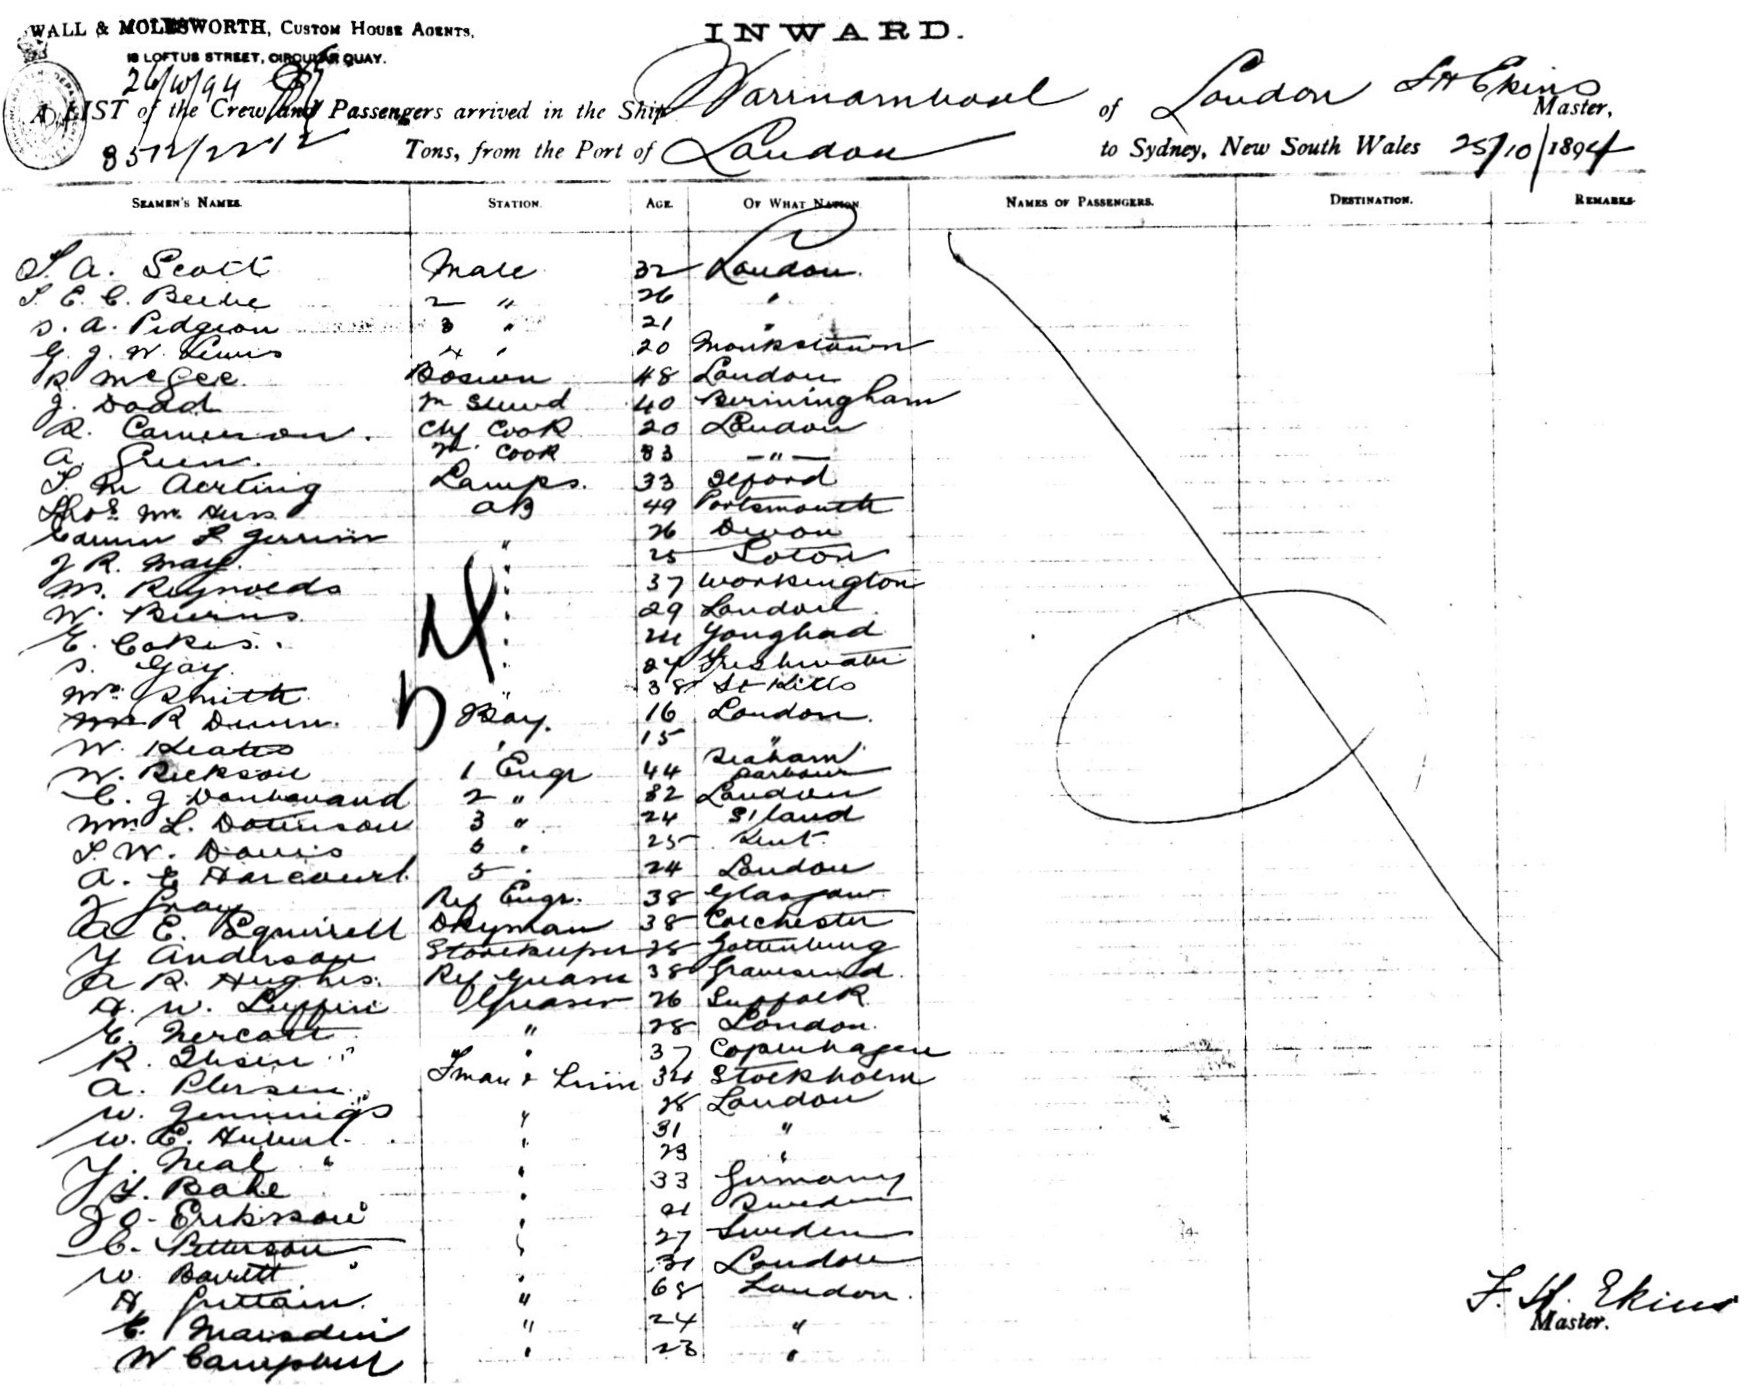 WALL & MOLESWORTH, CUSTOM HOUSE AGENTS,
18 LOFTUS STREET, CIRCULAR QUAY.
INWARD.
26/10/94
A LIST of the Crew and Passengers arrived in the Ship Warrnambool of London F H Ekins Master,
8572/2212 Tons, from the Port of London to Sydney, New South Wales 25/10/1894
SEAMEN'S NAMES. STATION. AGE. OF WHAT NATION. NAMES OF PASSENGERS. DESTINATION. REMARKS.
A. Scott Mate 32 London
E. C. Beebe 2 " 26 "
S. A. Pidgeon 3 " 21 "
G. J. W. Lewis 4 " 20 Monkstown
R McGee Bosun 48 London
J. Dodd 40 Birmingham
R. Cameron Cook 20 London
A. Green Cook 33 — " —
Lamps. 33 Ilford
Thos Wm AB 49 Portsmouth
Edwin 26 Devon
J R. May " 25 Soton
M. Reynolds " 37 Workington
W. Burns " 29 London
E. Cokes " 24 Youghal
S. Gay " 24 Freshwater
Wm Smith " 38 St Kitts
R Dunn Boy. 16 London
W. Keates " 15 "
W. 1 Engr 44 Seaham Harbour
C. J 2 " 32 London
Wm L. 3 " 24
W. Davis 25 Kent
A. E Harcourt 5 " 24 London
J Gray Ref Engr. 38 Glasgow
A E. Squirrell Dkyman 38 Colchester
Anderson Storekeeper 28 Gottenburg
A R. Hughes Ref Greaser 38 Gravesend
A. W. Luffin Greaser 26 Suffolk
E. " 28 London
R. Ibsen " 37 Copenhagen
A. Fman & Trim 34 Stockholm
W. Jennings " 28 London
W. E. " 31 "
Neal " 23 "
Bahe " 33 Germany
Erikson " 21 Sweden
C. Petterson " 27 Sweden
W Barrett " 31 London
A. Brittain " 68 London
E. Marsden " 24 "
W Campbell " 23 "
F. H. Ekins
Master.